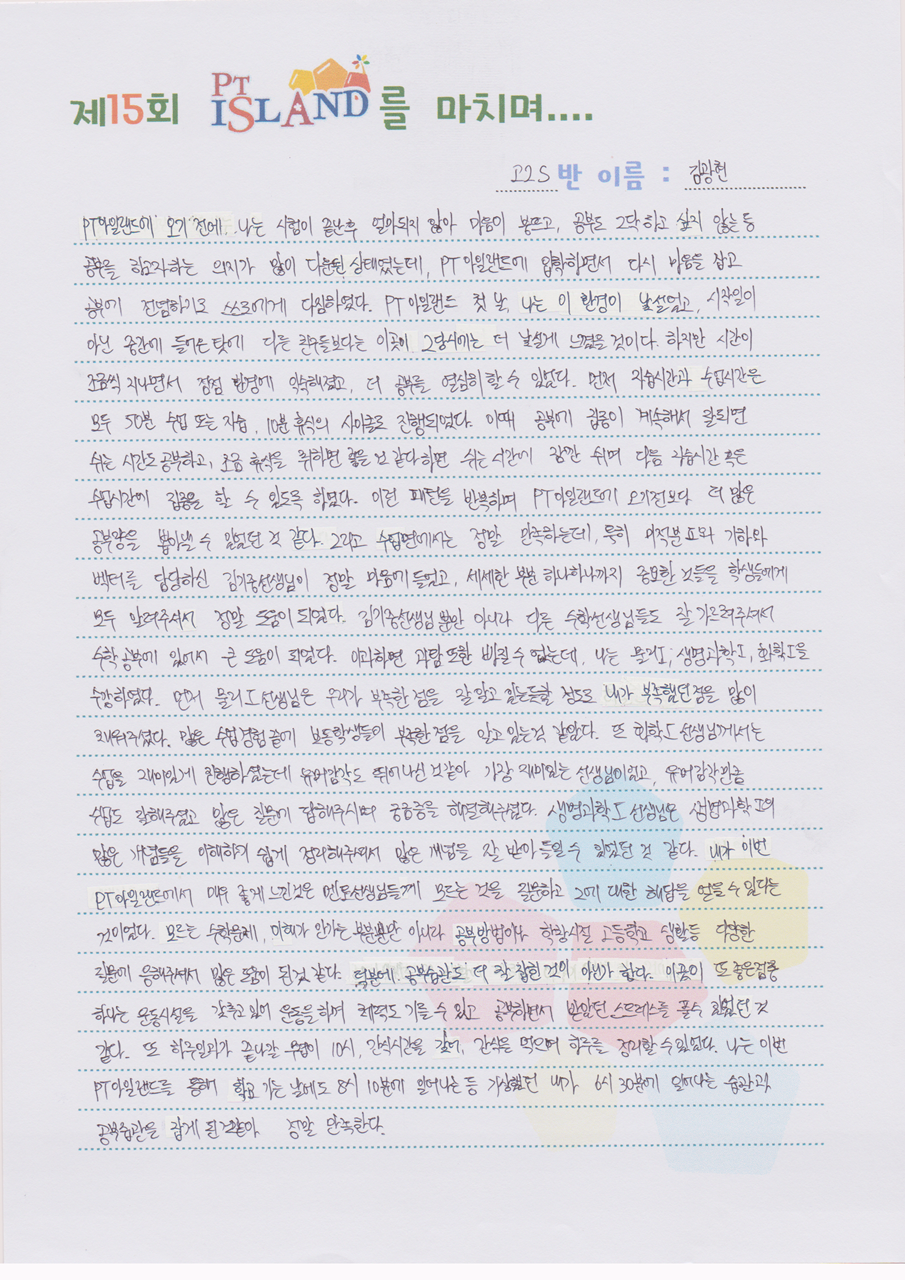 제15회 PT ISLAND를 마치며....
I2S 반 이름 : 김광현
PT아일랜드에 오기 전에, 나는 시험이 끝난후 얼마되지 않아 마음이 붕뜨고, 공부도 그닥 하고 싶지 않는 등
공부를 하고자하는 의지가 많이 다운된 상태였는데, PT 아일랜드에 입학하면서 다시 마음을 잡고
공부에 전념하기로 스스로에게 다짐하였다. PT 아일랜드 첫 날, 나는 이 환경이 낯설었고, 시작일이
아닌 중간에 들어온 탓에 다른 친구들보다는 이곳이 그당시에는 더 낯설게 느꼈을 것이다. 하지만 시간이
조금씩 지나면서 점점 환경에 익숙해졌고, 더 공부를 열심히 할 수 있었다. 먼저 자습시간과 수업시간은
모두 50분 수업 또는 자습, 10분 휴식의 사이클로 진행되었다. 이때 공부에 집중이 계속해서 잘되면
쉬는 시간도 공부하고, 조금 휴식을 취하면 좋을 것 같다하면 쉬는 시간에 잠깐 쉬며 다음 자습시간 혹은
수업시간에 집중을 할 수 있도록 하였다. 이런 패턴을 반복하며 PT아일랜드에 오기전보다 더 많은
공부양을 뽑아낼 수 있었던 것 같다. 그리고 수업면에서는 정말 만족하는데, 특히 미적분Ⅱ와 기하와
벡터를 담당하신 김기중선생님이 정말 마음에 들었고, 세세한 부분 하나하나까지 중요한 것들을 학생들에게
모두 알려주셔서 정말 도움이 되었다. 김기중선생님 뿐만 아니라 다른 수학선생님들도 잘 가르쳐주셔서
수학 공부에 있어서 큰 도움이 되었다. 이과하면 과탐 또한 빠질 수 없는데, 나는 물리Ⅰ, 생명과학Ⅰ, 화학Ⅰ을
수강하였다. 먼저 물리Ⅰ선생님은 우리가 부족한 점을 잘 알고 있는듯할 정도로 내가 부족했던점을 많이
채워주셨다. 많은 수업 경험 끝에 보통학생들이 부족한 점을 알고 있는것 같았다. 또 화학Ⅰ선생님께서는
수업을 재미있게 진행하셨는데 유머감각도 뛰어나신 것같아 가장 재미있는 선생님이었고, 유머감각만큼
수업도 잘해주셨고 많은 질문에 답해주시며 궁금증을 해결해주셨다. 생명과학Ⅰ선생님은 생명과학Ⅰ의
많은 개념들을 이해하기 쉽게 정리해주셔서 많은 개념을 잘 받아들일 수 있었던 것 같다. 내가 이번
PT아일랜드에서 매우 좋게 느낀것은 멘토선생님들께 모르는 것을 질문하고 그에 대한 해답을 얻을 수 있다는
것이었다. 모르는 수학문제, 이해가 안가는 부분뿐만 아니라 공부방법이나 학창시절 고등학교 생활등 다양한
질문에 응해주셔서 많은 도움이 된것 같다. 덕분에 공부습관도 더 잘 잡힌 것이 아닌가 한다. 이곳이 또 좋은점중
하나는 운동시설을 갖추고 있어 운동을 하며 체력도 기를 수 있고 공부하면서 받았던 스트레스를 풀수 있었던 것
같다. 또 하루일과가 끝나갈 무렵인 10시, 간식시간을 갖어, 간식을 먹으며 하루를 정리할 수 있었다. 나는 이번
PT아일랜드를 통해 학교 가는 날에도 8시 10분에 일어나는 등 기상했던 내가 6시 30분에 일어나는 습관과
공부습관을 잡게 된 것같아 정말 만족한다.